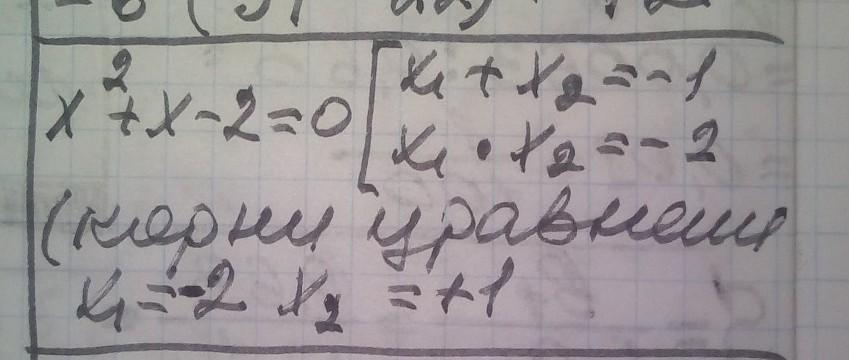 x² + x - 2 = 0 [ x₁ + x₂ = -1
x₁ · x₂ = -2
(корни уравнени
x₁ = -2 x₂ = +1